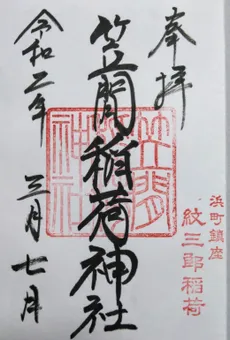 奉拝
浜町鎮座
紋三郎稲荷
笠間稲荷神社
笠間
神社
令和二年 三月七日